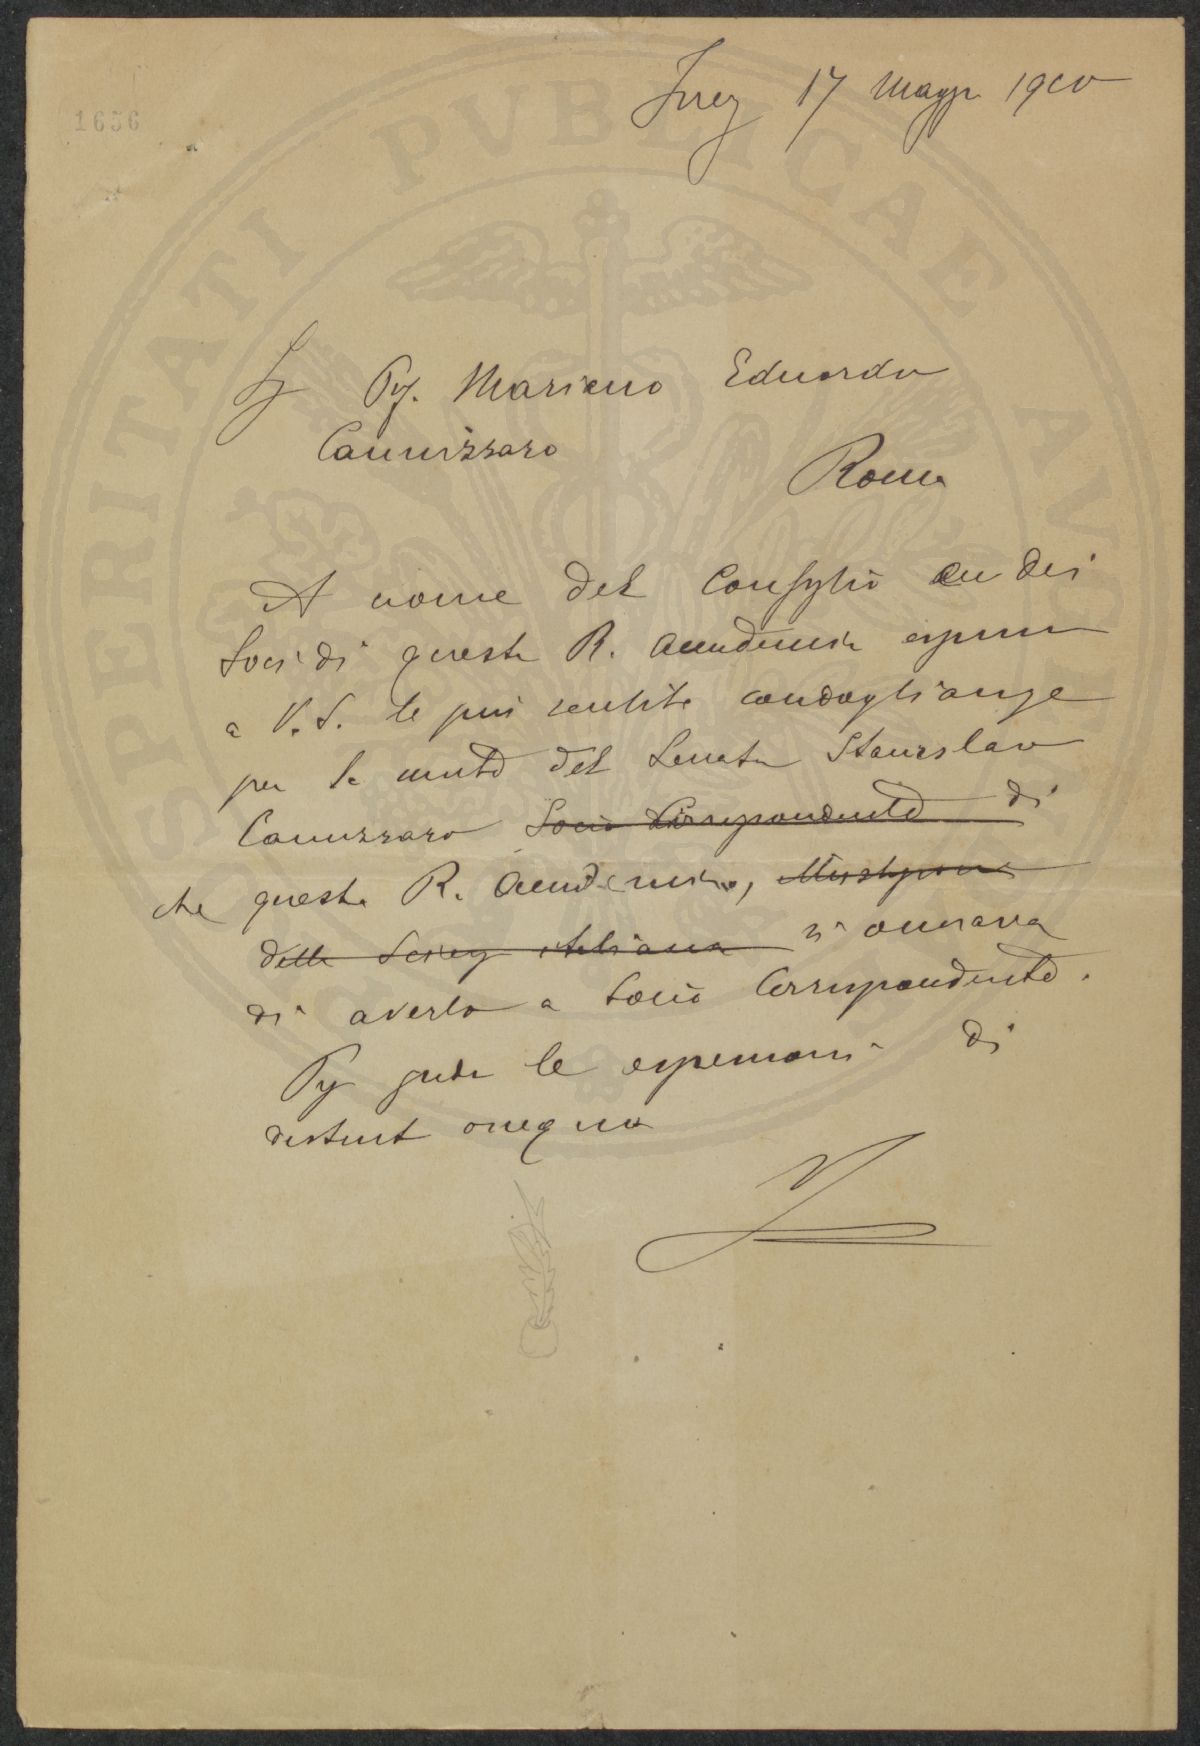 1656
17 Maggio 1910
Sig Prof. Mariano Eduardo
Cannizzaro
Roma
A nome del Consiglio e dei
Soci di questa R. Accademia esprimo
a V. S. le più sentite condoglianze
per la morte del Senatore Stanislao
Cannizzaro Socio Corrispondente di
che questa R. Accademia, 
della Scienza italiana si onorava
di averlo a Socio Corrispondente.
le espressioni di
distinto ossequio
PROSPERITATI PVBLICAE AVGENDAE